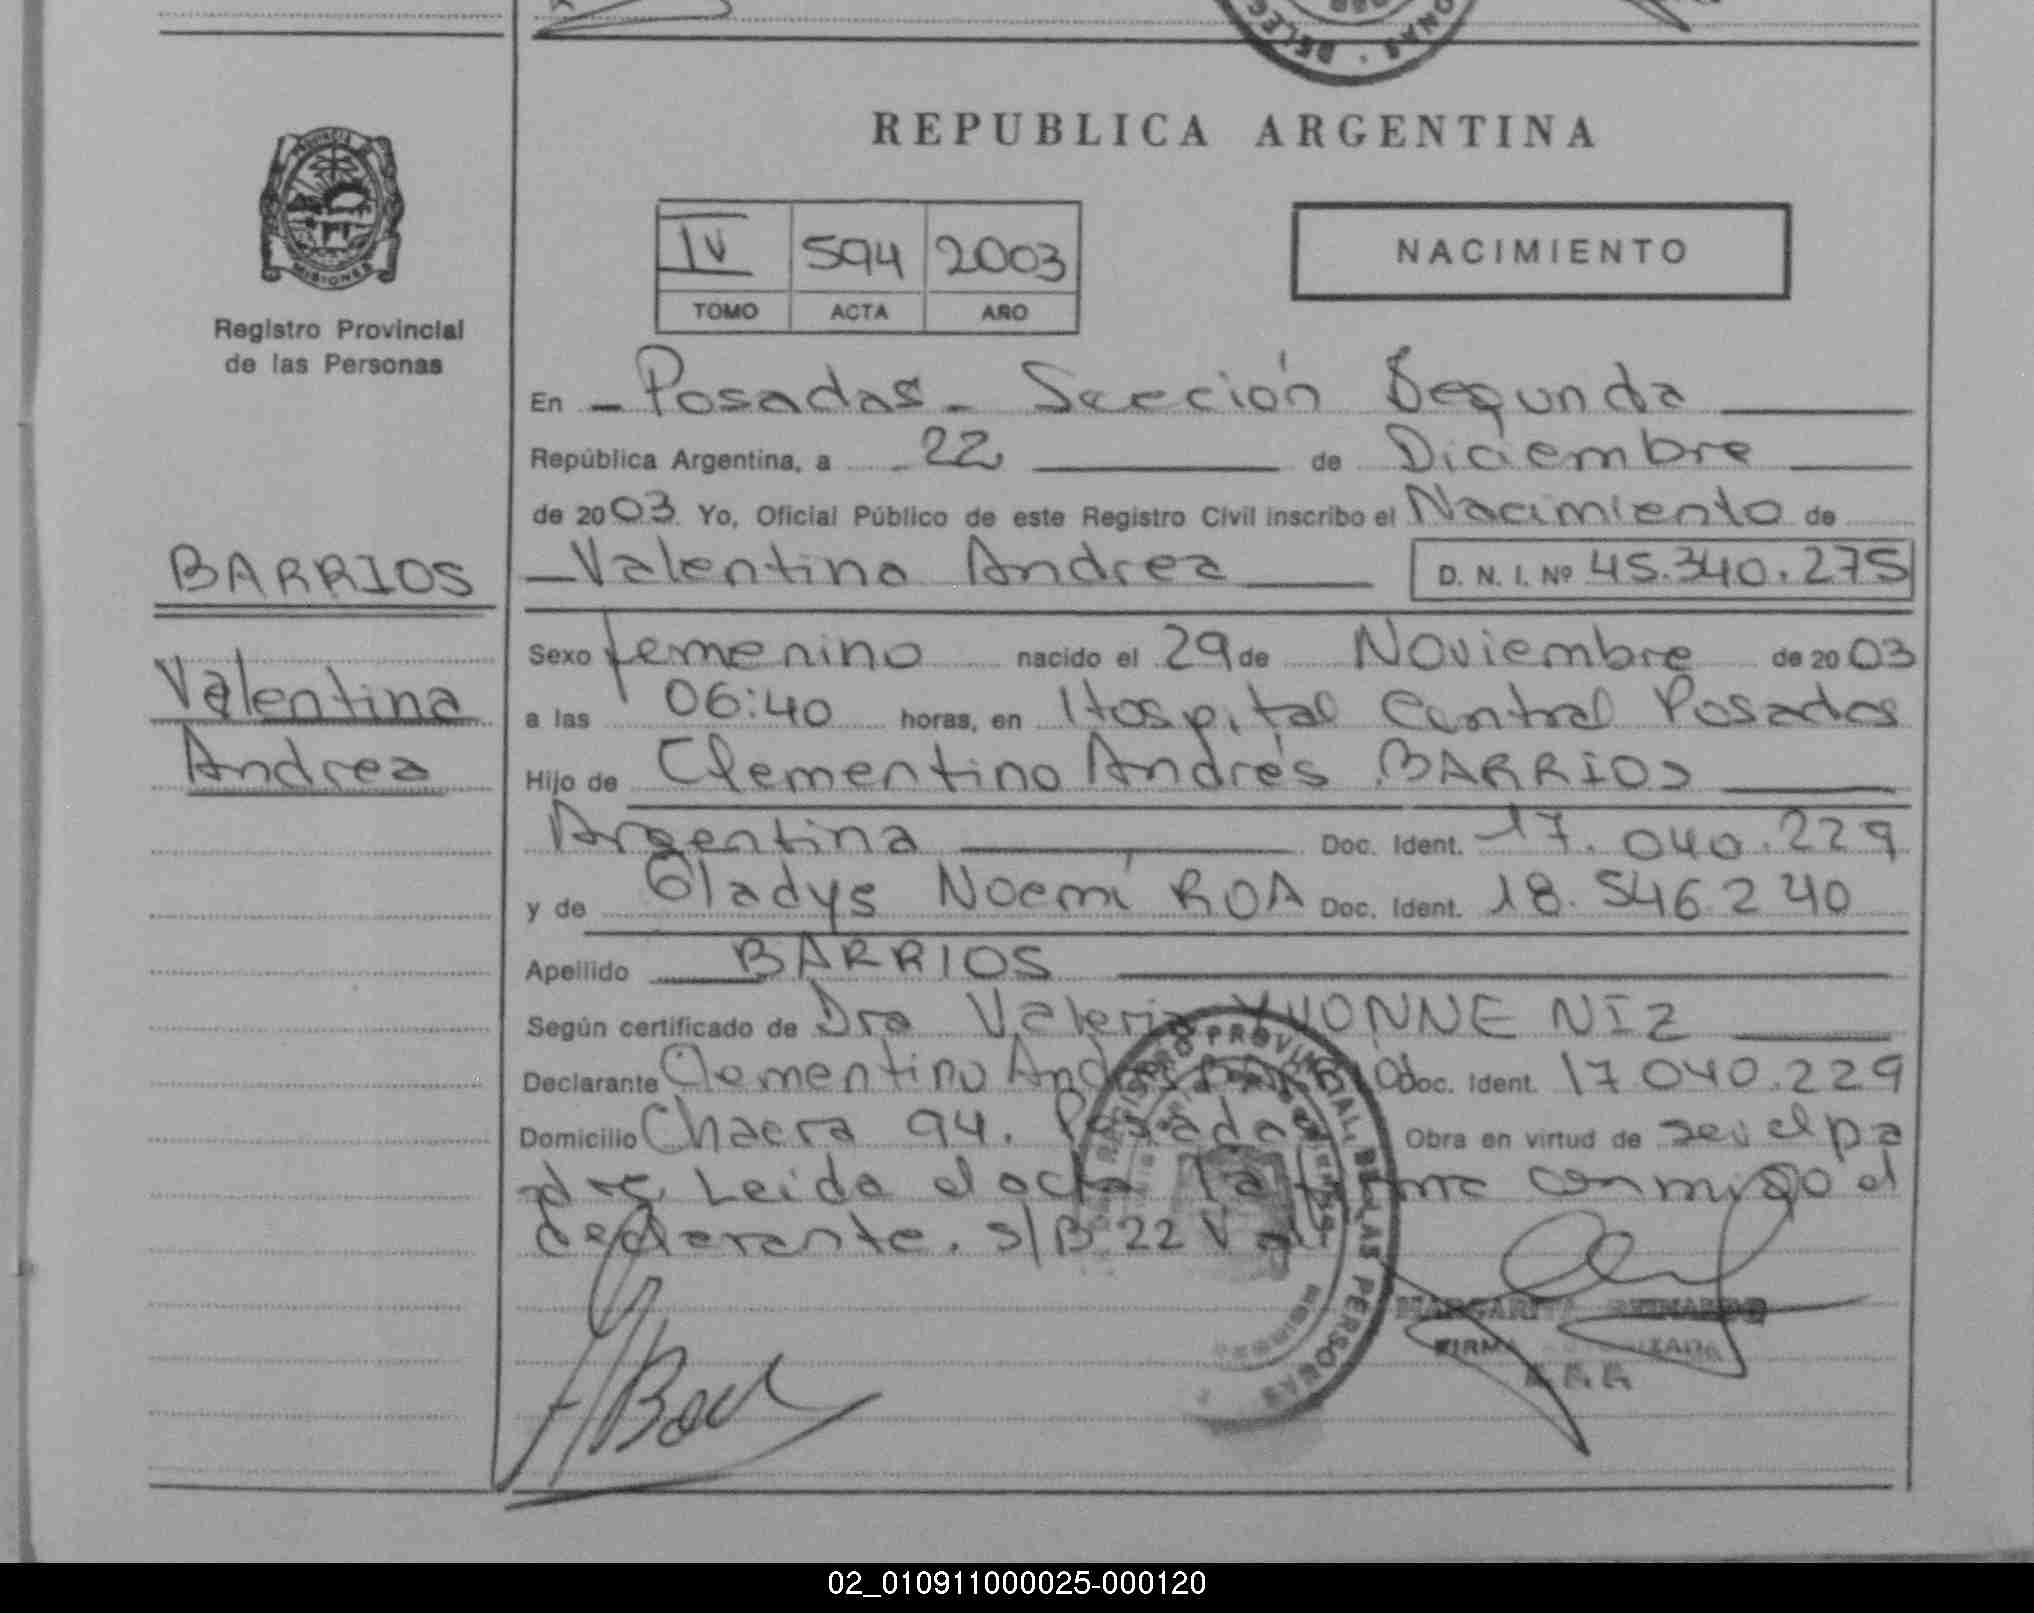 REPUBLICA ARGENTINA
PROVINCIA DE
MISIONES
Registro Provincial
de las Personas
IV 594 2003
TOMO ACTA AÑO
NACIMIENTO
En - Posadas - Sección Segunda
República Argentina, a 22 de Diciembre
de 2003 Yo, Oficial Público de este Registro Civil inscribo el Nacimiento de
Valentina Andrea D. N. I. Nº 45.340.275
BARRIOS
Valentina
Andrea
Sexo femenino nacido el 29 de Noviembre de 2003
a las 06:40 horas, en Hospital Central Posadas
Hijo de Clementino Andrés BARRIOS
Argentina Doc. Ident. 17.040.229
y de Gladys Noemí ROA Doc. Ident. 18.546.240
Apellido BARRIOS
Según certificado de Dra Valeria YVONNE NIZ
Declarante Clementino Andrés BARRIOS Doc. Ident. 17 040.229
Domicilio Chacra 94. Posadas Obra en virtud de ser el pa
dre. Leida el acta la firma conmigo el
declarante. s/B 22 Vale
REGISTRO PROVINCIAL DE LAS PERSONAS
MARGARITA
FIRMA AUTORIZADA
02_010911000025-000120